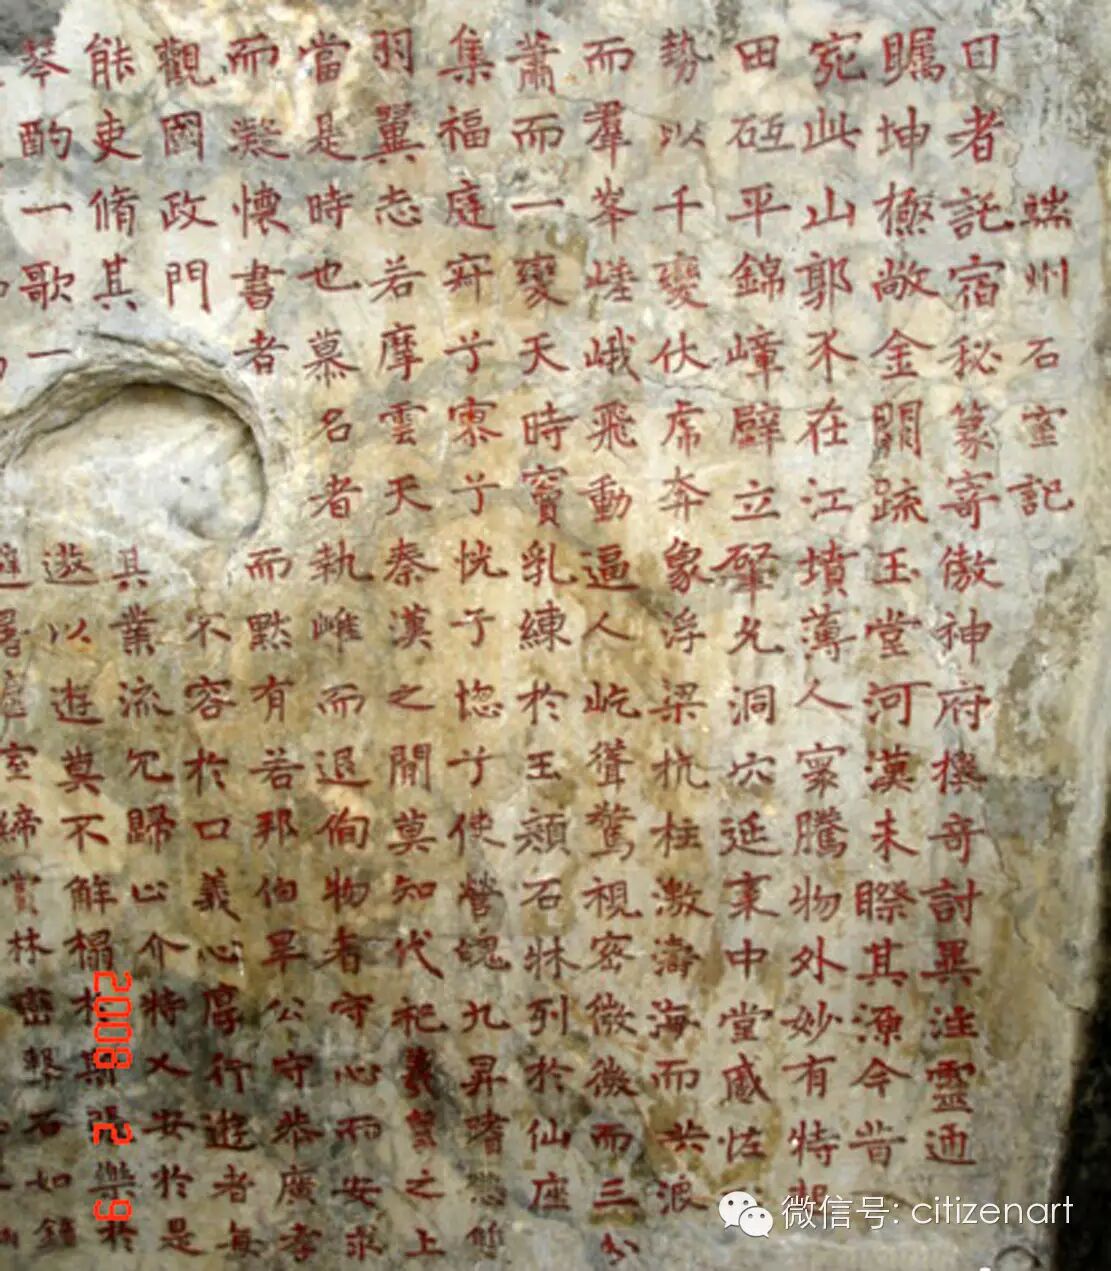 端州石室記
日者託宿秘篆寄傲神府攘奇討異注靈通
矚坤極敞金閞疏玉堂河漢未睽其源今昔
宛此山郭不在江墳薄人寰騰物外妙有特
田砥平錦嶂壁立肇允洞穴延袤中堂感怪
勢以千變伏虎奔象浮梁抗柱激濤海而共浪
而羣峯嵯峨飛動逼人屹聳驚視密微微而三分
蕭而一變天時竇乳練於玉頹石牀列於仙座
集福庭穽兮寥兮恍兮惚兮使營魄九昇嗜慾
羽翼志若摩雲天秦漢之開莫知代祀羲皇之上
當是時也慕名者執雌而退徇物者守心而安求
而凝懷書者而默有若邦伯畢公守恭廣孝
觀國政門不容於口義心厚行遊者每
能吏脩其其業流冗歸心介特乂安於是
琴酌一歌一遨以遊莫不解榻
室締賞林巒擊石如鐘
2008 12 9
微信号: citizenart